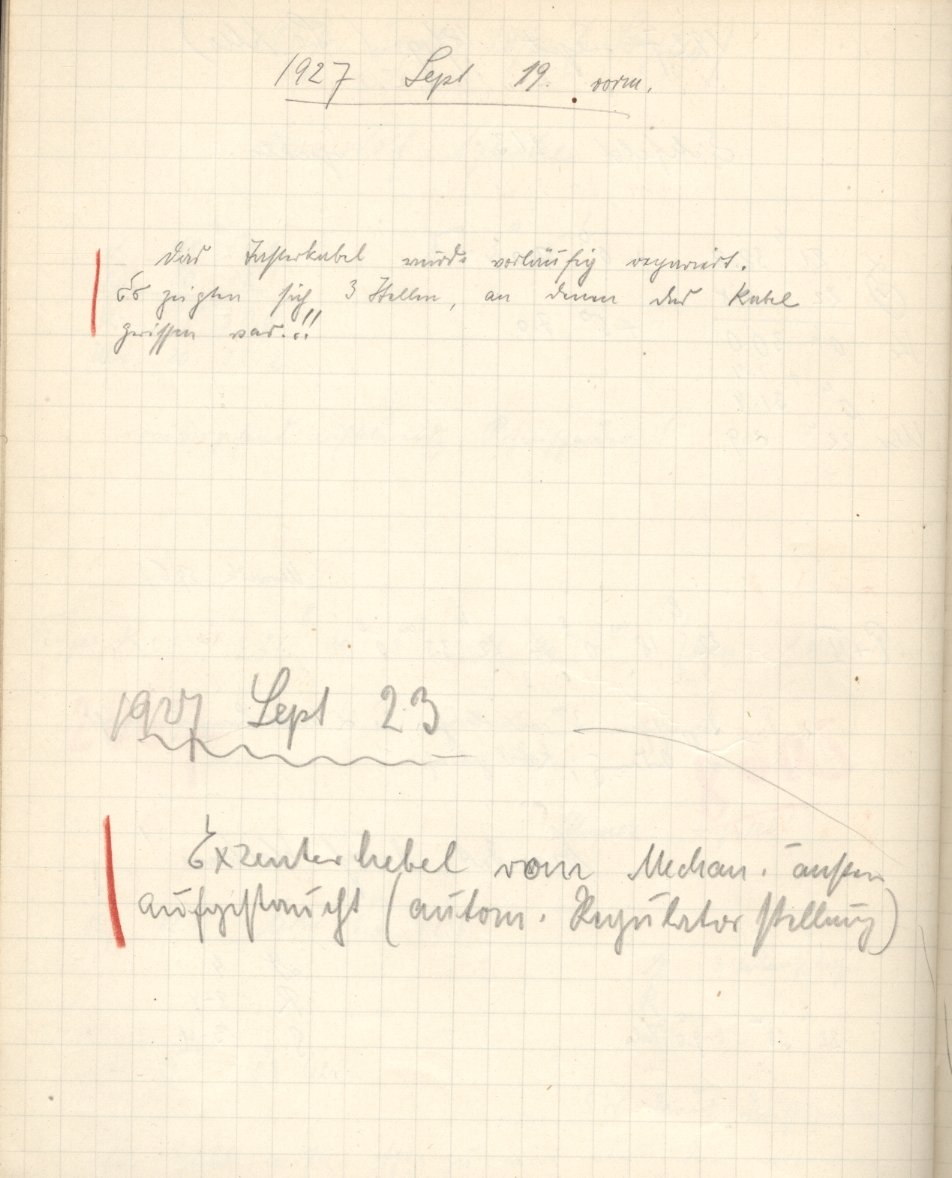 1927 Sept 19. vorm.
Das Tasterkabel wurde vorläufig repariert.
Es zeigten sich 3 Stellen, an denen das Kabel
gerissen war.!!
1927 Sept 23
Exzenterhebel vom Mechan. außen
aufgestaucht (autom. Regulatorstellung)